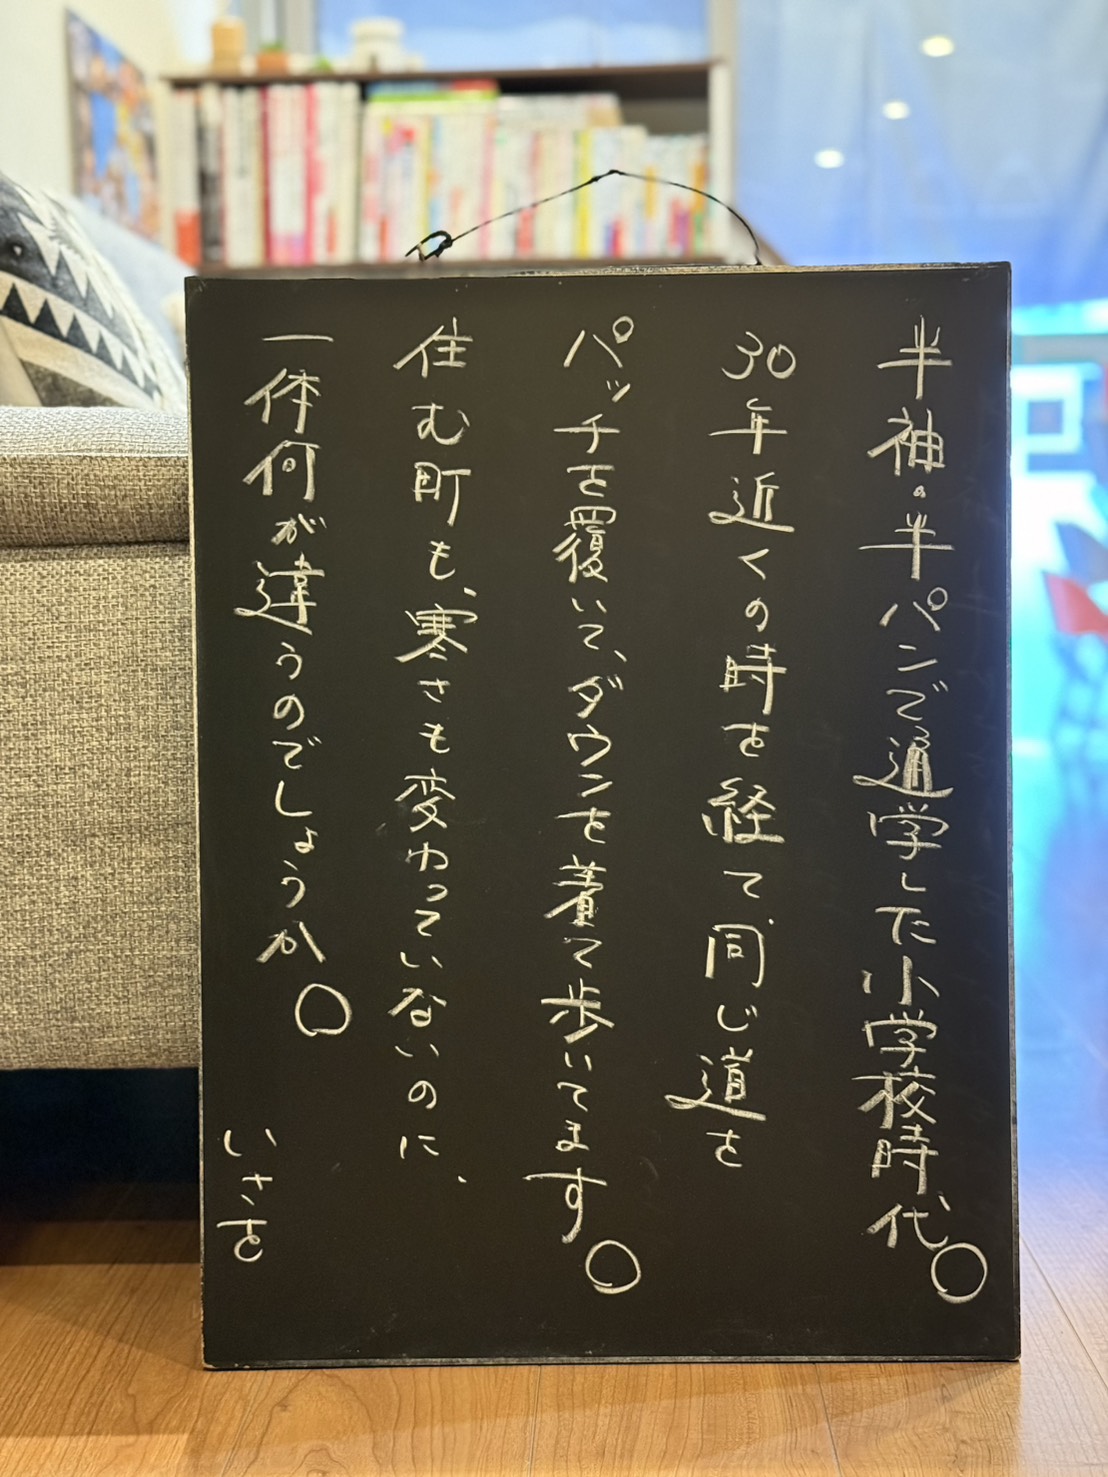 半袖・半パンで通学した小学校時代。
30年近くの時を経て、同じ道を
パッチを覆いて、ダウンを着て歩いてます。
住む町も、寒さも変わっていないのに、
一体何が違うのでしょうか。
いさを